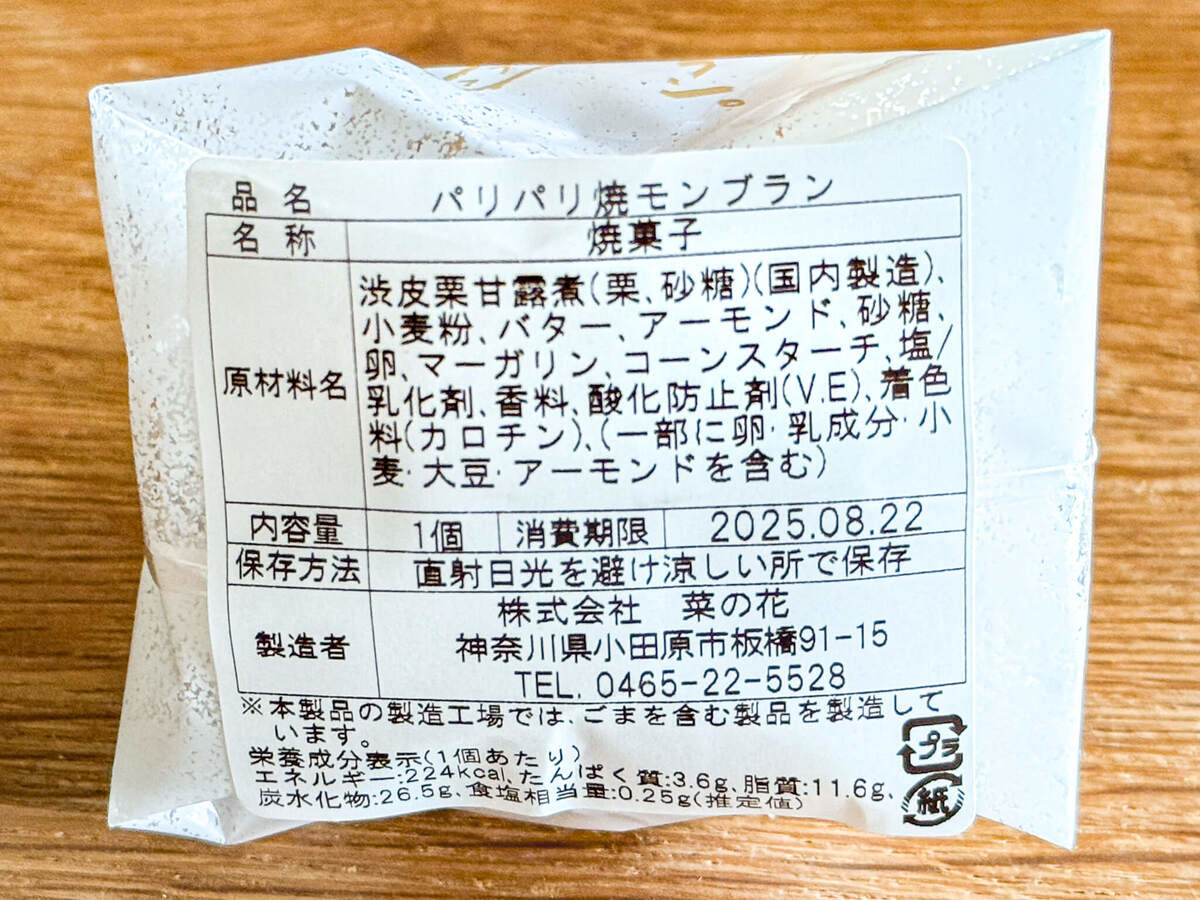 品名 パリパリ焼モンブラン
名称 焼菓子
原材料名
渋皮栗甘露煮(栗、砂糖)(国内製造)、
小麦粉、バター、アーモンド、砂糖、
卵、マーガリン、コーンスターチ、塩/
乳化剤、香料、酸化防止剤(V.E)、着色
料(カロチン)、(一部に卵・乳成分・小
麦・大豆・アーモンドを含む)
内容量 1個 消費期限 2025.08.22
保存方法 直射日光を避け涼しい所で保存
製造者
株式会社 菜の花
神奈川県小田原市板橋91-15
TEL. 0465-22-5528
※本製品の製造工場では、ごまを含む製品を製造して
います。
栄養成分表示(1個あたり)
エネルギー:224kcal、たんぱく質:3.6g、脂質:11.6g、
炭水化物:26.5g、食塩相当量:0.25g(推定値)
プラ
紙